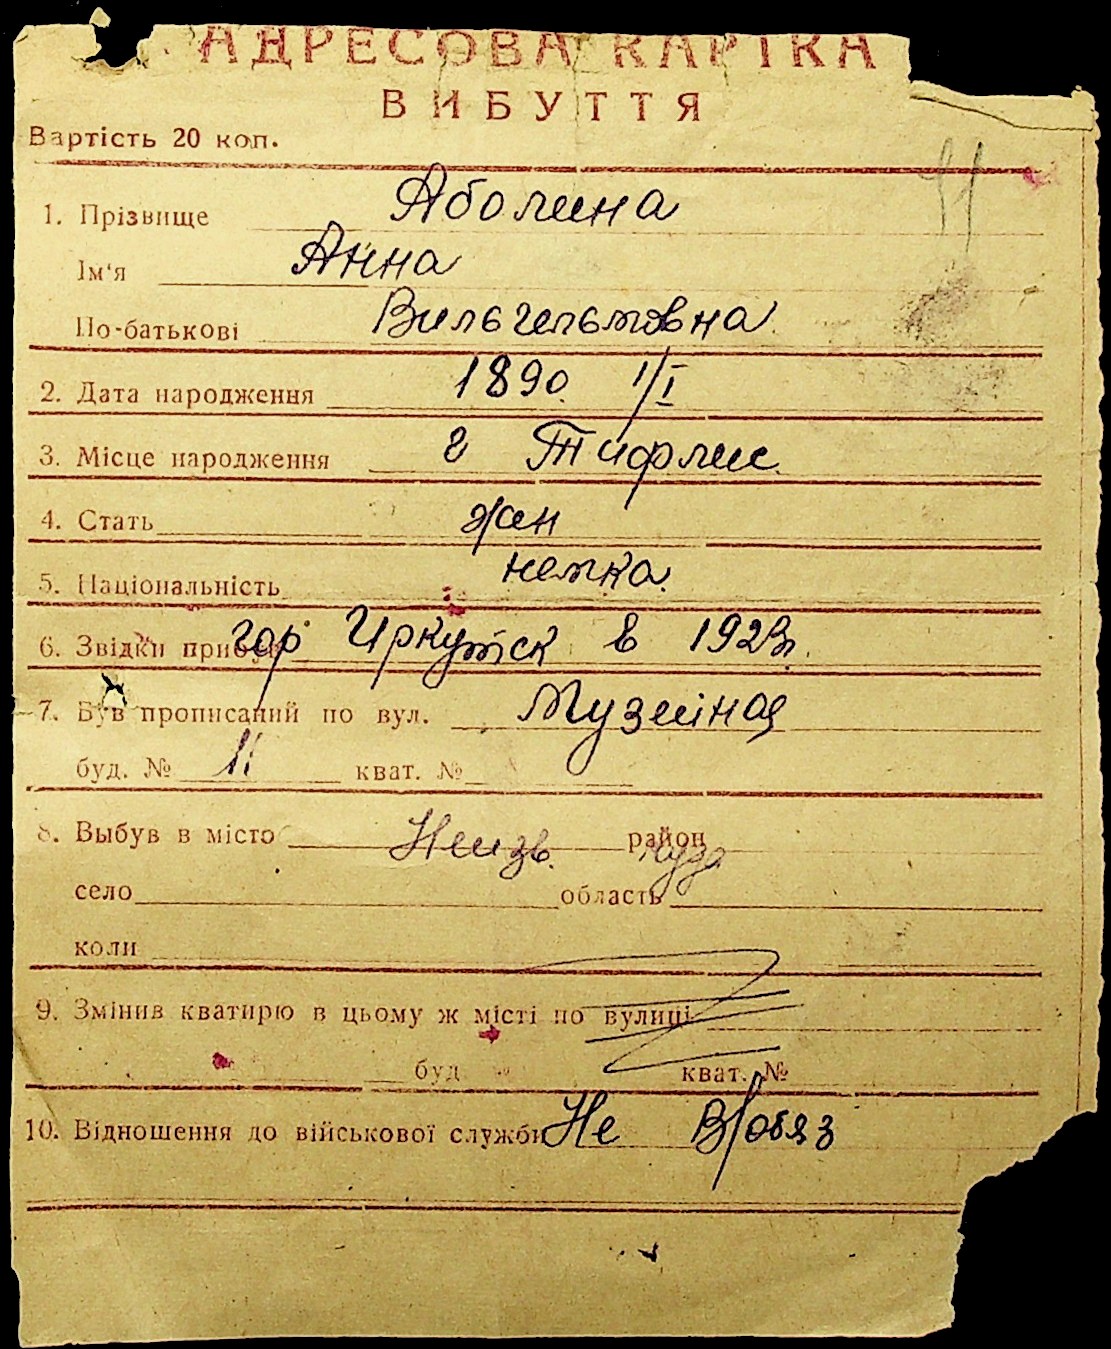 АДРЕСОВА КАРТКА
ВИБУТТЯ
Вартість 20 коп.
1. Прізвище Аболина
Ім'я Анна
По-батькові Вильгельмовна
2. Дата народження 1890 1/I
3. Місце народження г Тифлис
4. Стать жен
5. Національність немка
6. Звідки прибув гор Иркутск в 1923г.
7. Був прописаний по вул. Музейная
буд. № 11 кват. №
8. Выбув в місто Неизв. район
куда
село область
коли
9. Змінив кватирю в цьому ж місті по вулиці
буд кват. №
10. Відношення до військової служби Не в/обяз